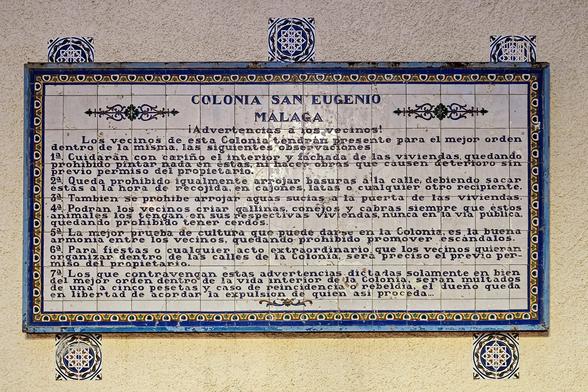 COLONIA SAN EUGENIO
MÁLAGA
¡Advertencias a los vecinos!
Los vecinos de esta Colonia tendrán presente para el mejor orden
dentro de la misma, las siguientes observaciones
1ª Cuidarán con cariño el interior y fachada de las viviendas, quedando
prohibido pintar nada en éstas, ni hacer obras que causen deterioro sin
previo permiso del propietario.
2ª Queda prohibido igualmente arrojar basuras a la calle, debiendo sacar
éstas a la hora de recojida, en cajones, latas o cualquier otro recipiente.
3ª Tambien se prohibe arrojar aguas sucias a la puerta de las viviendas.
4ª Podrán los vecinos criar gallinas, conejos y cabras siempre que estos
animales los tengan en sus respectivas viviendas, nunca en la vía pública,
quedando prohibido tener cerdos.
5ª La mejor prueba de cultura que puede darse en la Colonia, es la buena
armonía entre los vecinos, quedando prohibido promover escándalos.
6ª Para fiestas o cualquier acto extraordinario que los vecinos quieran
organizar dentro de las calles de la Colonia, será preciso el previo per-
miso del propietario.
7ª Los que contravengan estas advertencias dictadas solamente en bien
del mejor orden dentro de la vida interior de la Colonia, serán multados
de una a cinco pesetas y caso de reincidencia o rebeldía, el dueño queda
en libertad de acordar la expulsión de quien así proceda...